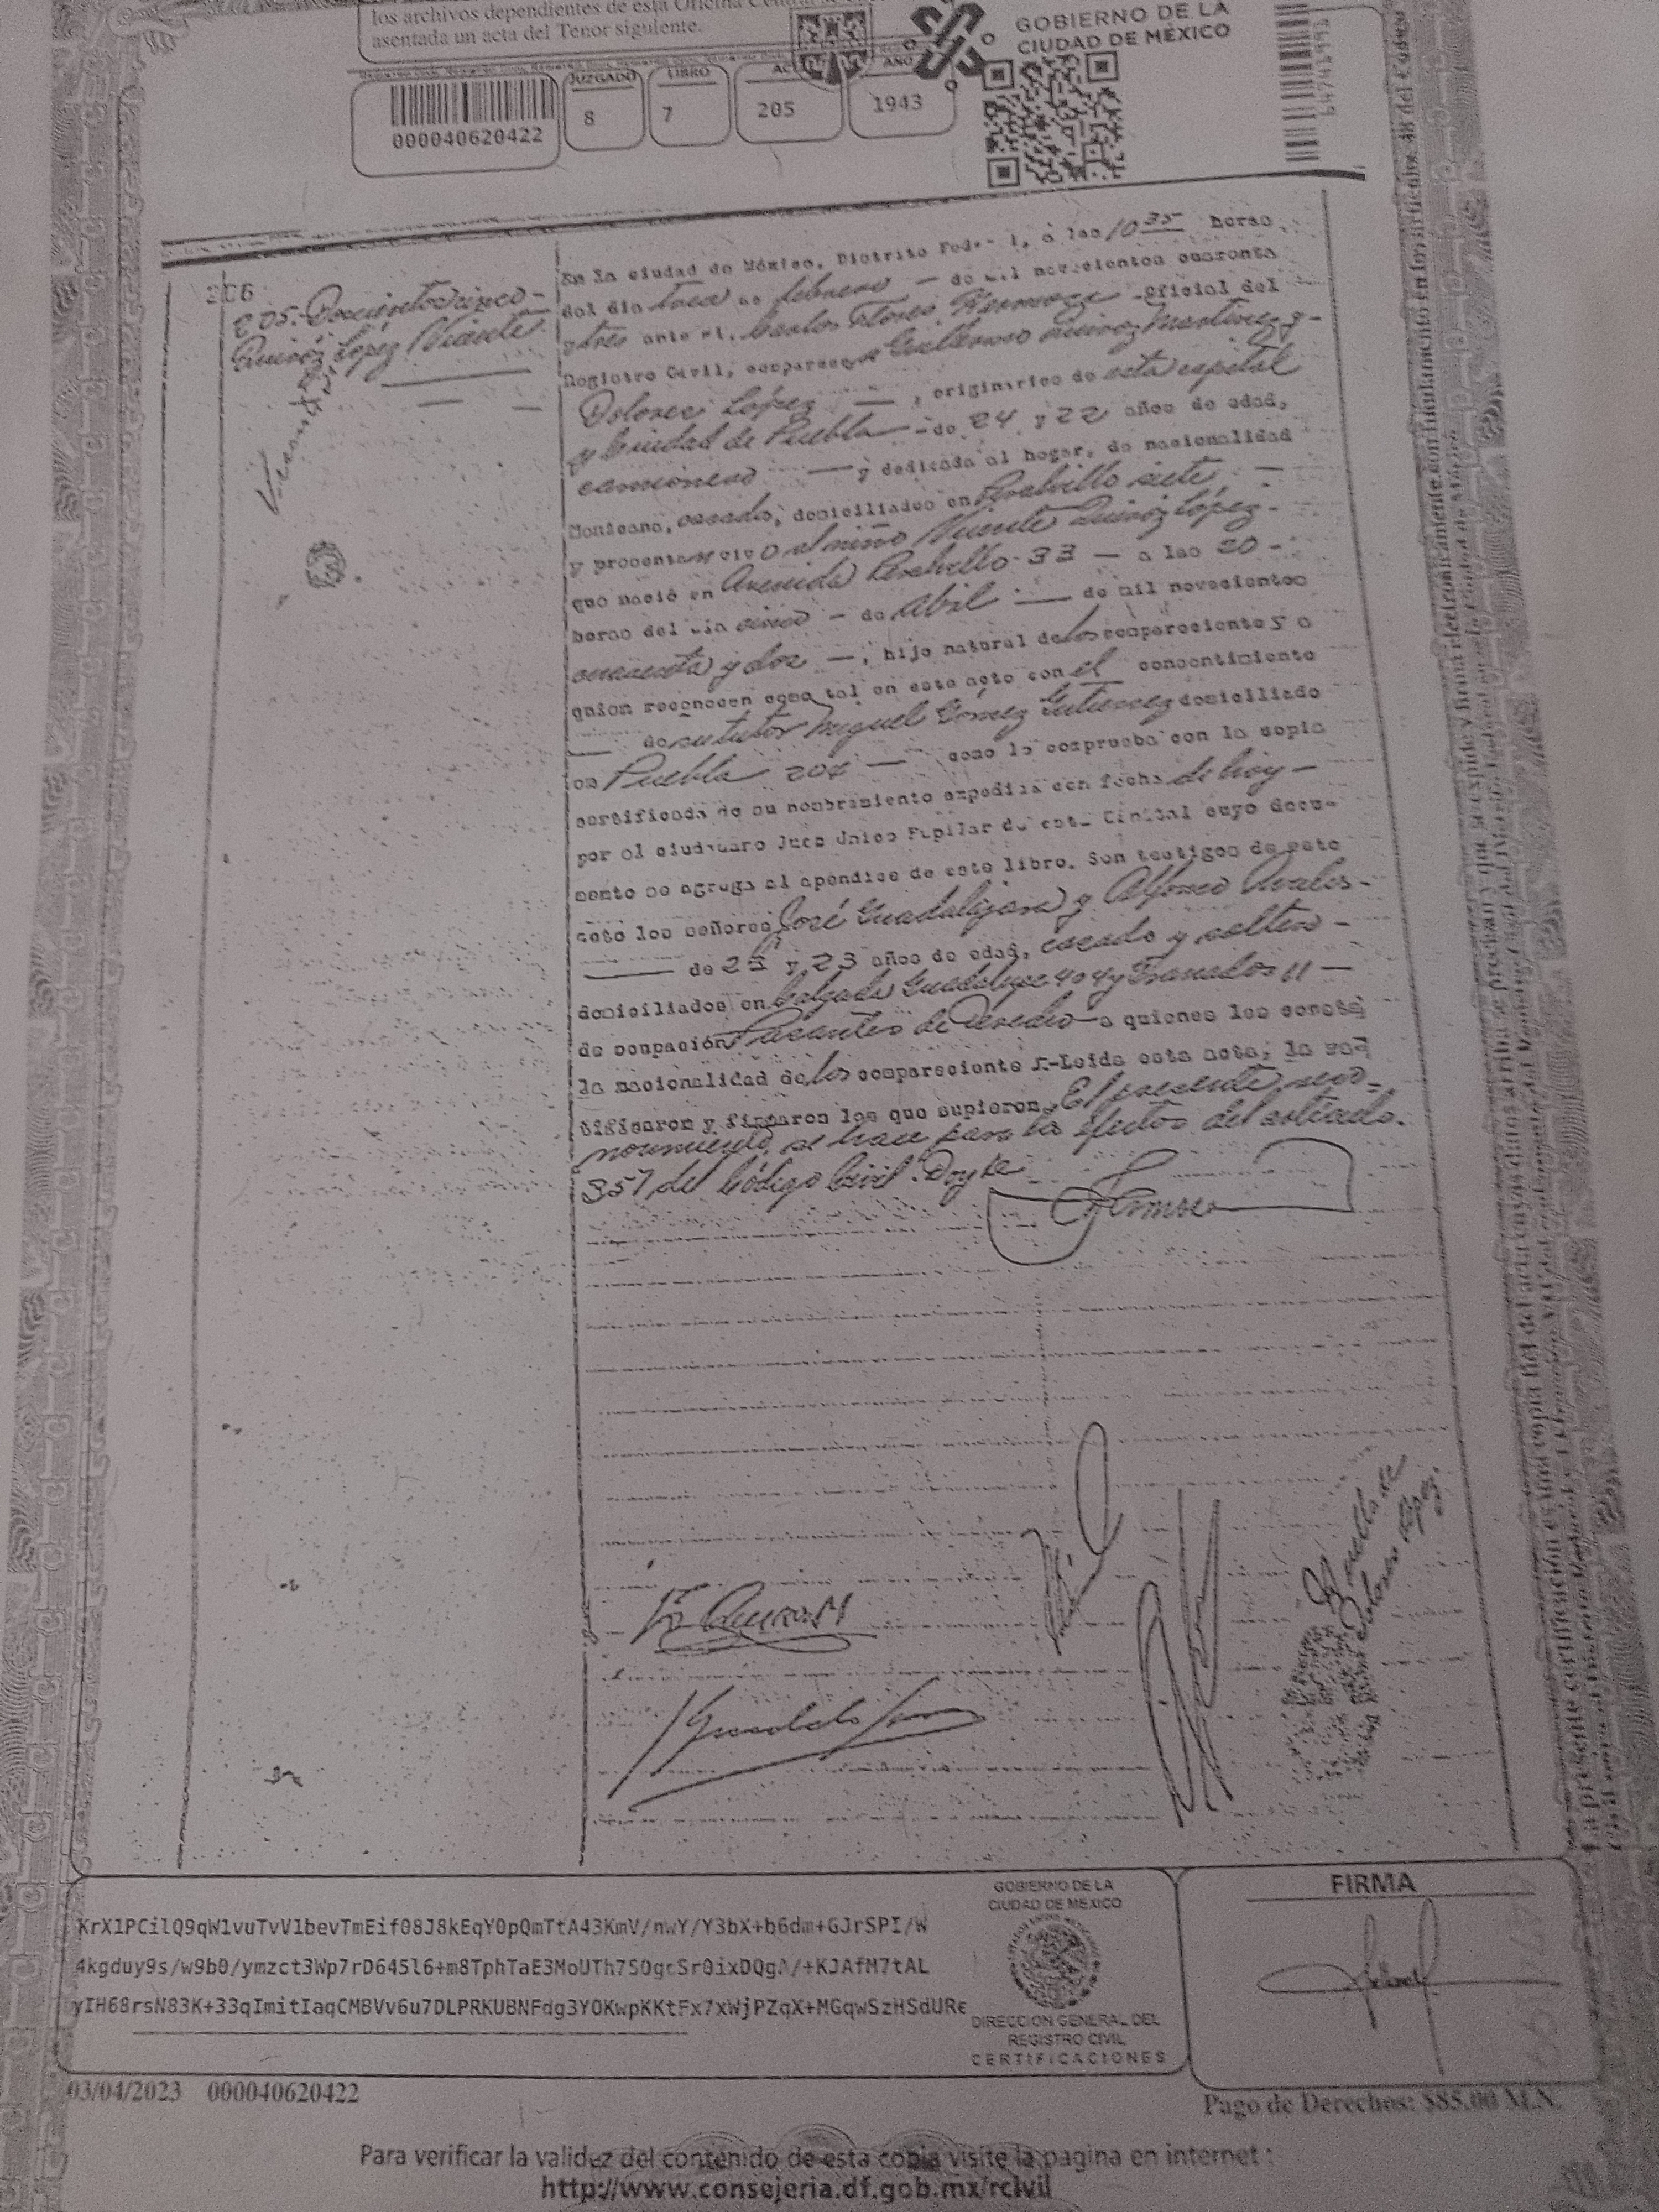 los archivos dependientes de esta Oficina Central
asentada un acta del Tenor siguiente.
GOBIERNO DE LA
CIUDAD DE MÉXICO
JUZGADO LIBRO AÑO
000040620422 8 7 205 1943
En la ciudad de México, Distrito Fed, a las 10 35 horas
del día trece de febrero — de mil novecientos cuarenta
y tres ante mí, Carlos Flores Oficial del
Registro Civil, comparecen Guillermo Quiroz Martinez y-
Dolores López —, originarios de esta capital
y Ciudad de Puebla — de 24 y 22 años de edad,
camionero — y dedicada al hogar, de nacionalidad
Mexicana, casados, domiciliados en Peralvillo siete, —
y presentan vivo al niño Vicente Quiróz López-
que nació en Avenida Peralvillo 33 — a las 20 -
horas del día cinco — de Abril — de mil novecientos
cuarenta y dos —, hijo natural de los comparecientes a
quien reconocen como tal en este acto con el consentimiento
— de su tutor Miguel Gómez Gutierrez domiciliado
en Puebla — como lo comprueba con la copia
certificada de su nombramiento expedida con fecha de hoy —
por el ciudadano Juez Unico Pupilar de esta Capital cuyo docu-
mento se agrega al apéndice de este libro. Son testigos de este
acto los señores José Guadalajara y Alfonso Avalos-
— de y 23 años de edad, casado y soltero -
domiciliados en Calzada Guadalupe 404 y Granados 11 —
de ocupación Pasantes de Derecho a quienes les consta
la nacionalidad de los comparecientes.-Leida esta acta, la ra-
tificaron y firmaron los que supieron. El presente reco-
nocimiento, se hace para los efectos del artículo.
357 del Código Civil. Doy fe
206
205.-Doscientos cinco-
Quiróz López Vicente
Huella de
Dolores López.
KrX1PCilQ9qW1vuTvV1bevTmEif08J8kEqY0pQmTtA43KmV/nwY/Y3bX+b6dm+GJrSPI/W
yIH68rsN83K+33qImitIaqCMBVv6u7DLPRKUBNFdg3YOKwpKKtFx7xWjPZqX+MGqwSzHSdURe
GOBIERNO DE LA
CIUDAD DE MEXICO
DIRECCION GENERAL DEL
REGISTRO CIVIL
CERTIFICACIONES
FIRMA
03/04/2023 000040620422
Pago de Derechos: $85.00 M.N.
Para verificar la validez del contenido de esta copia visite la pagina en internet :
http://www.consejeria.df.gob.mx/rcivil